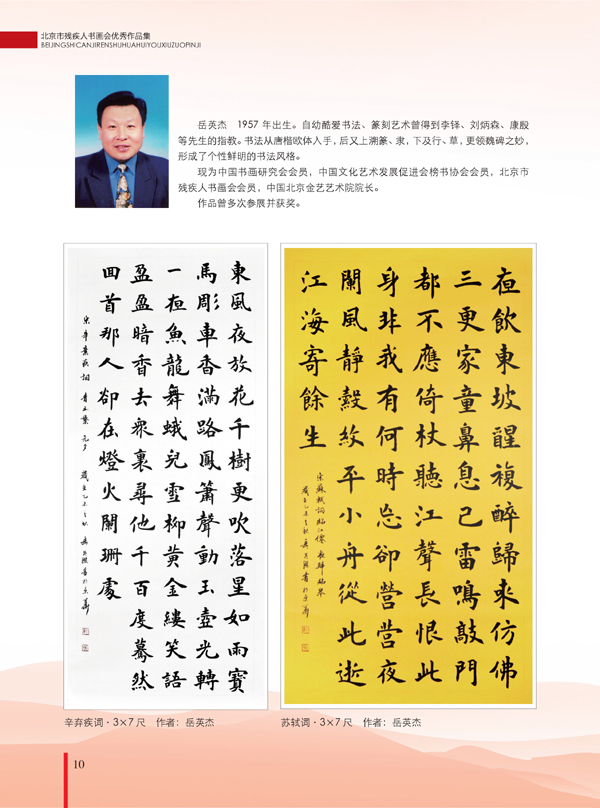 北京市残疾人书画会优秀作品集
BEIJINGSHICANJIRENSHUHUAHUIYOUXIUZUOPINJI
岳英杰 1957 年出生。自幼酷爱书法、篆刻艺术曾得到李铎、刘炳森、康殷
等先生的指教。书法从唐楷欧体入手，后又上溯篆、隶，下及行、草，更领魏碑之妙，
形成了个性鲜明的书法风格。
现为中国书画研究会会员，中国文化艺术发展促进会榜书协会会员，北京市
残疾人书画会会员，中国北京金艺艺术院院长。
作品曾多次参展并获奖。
東風夜放花千樹更吹落星如雨寶
馬彫車香滿路鳳簫聲動玉壺光轉
一夜魚龍舞蛾兒雪柳黃金縷笑語
盈盈暗香去眾裏尋他千百度驀然
回首那人卻在燈火闌珊處
宋辛棄疾詞 青玉案 元夕 歲在乙未之秋 岳英傑書於京華
夜飲東坡醒複醉歸來仿佛
三更家童鼻息已雷鳴敲門
都不應倚杖聽江聲長恨此
身非我有何時忘卻營營夜
闌風靜縠紋平小舟從此逝
江海寄餘生
宋蘇軾詞臨江僊 夜歸臨皋
歲在乙未之秋 岳英傑書於京華
辛弃疾词·3×7 尺 作者：岳英杰
苏轼词·3×7 尺 作者：岳英杰
10